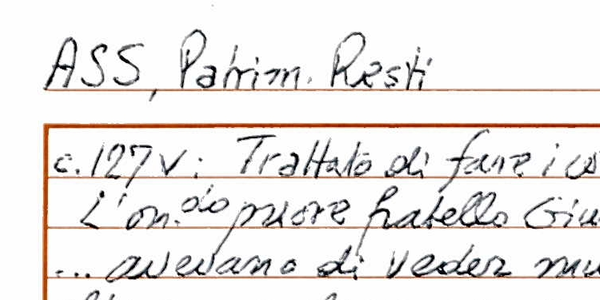 ASS, Patrim. Resti
c. 127 v: Trattato di fare i co
L'on.do priore fratello Giu
... avevano di veder mu